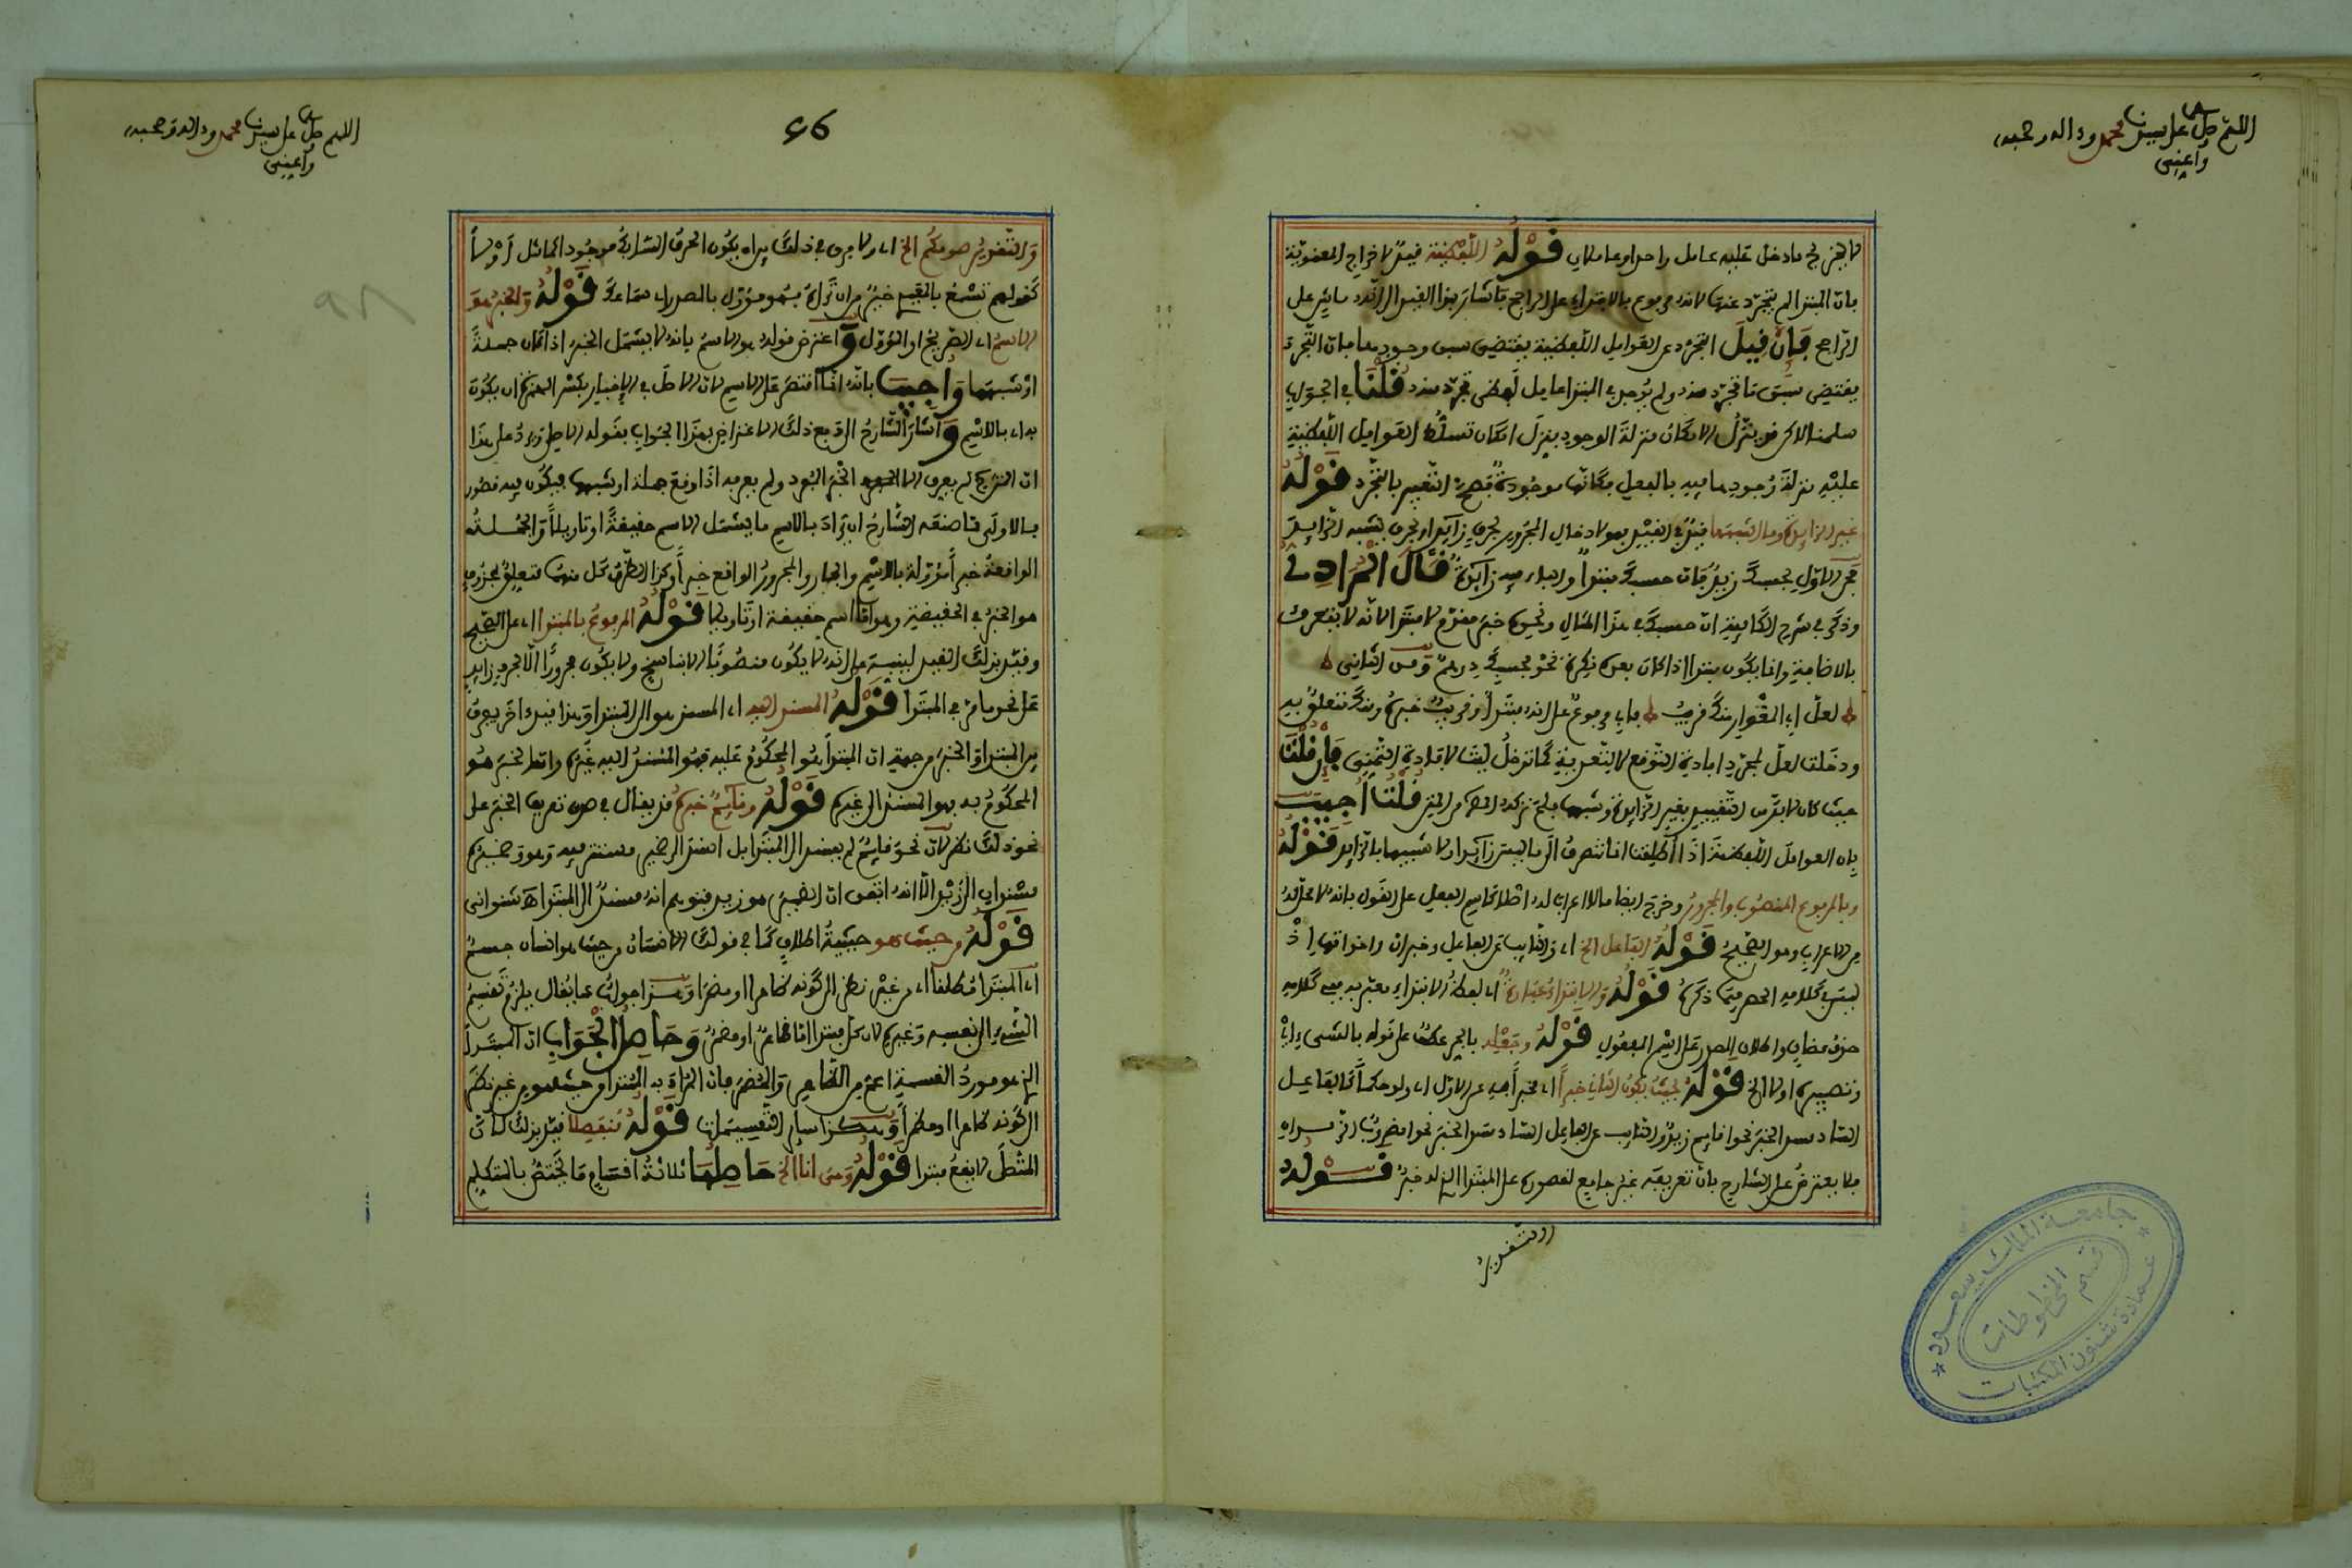 اللهم صل على سيدنا محمد وءاله وصحبه
وأعني
لا يخرج ما دخل عليه عامل واحد او عاملان قوله اللفظية قيد لاخراج المعنوية
بان المبتدا لم يتجرد عنها لانه مرفوع بالابتداء على الراجح فاشار بهذا القيد الى انه ماش على
الراجح فإن قيل التجرد عن العوامل اللفظية يقتضي سبق وجودها مابان التجرد
يقتضي سبق ما تجرد منه ولم يوجد في المبتدا عامل لفظي تجرد منه قلنا في الجواب
سلمنا لاكن قد ينزل الامكان منزلة الوجود بنزل امكان تسلط العوامل اللفظية
عليه منزلة وجودها فيه بالفعل فكانها موجودة فصح التعبير بالتجرد قوله
غير الزايدة وما اشبهها فيد في القيد بهو لادخال المجرور بحرف زايد او بحرف يشبه الزايد
فمن الاول بحسبك زيد فان حسبك مبتدا والباء فيه زايدة قال المرادي
وذكر في شرح الكافية ان حسبك في هذا المثال ونحوه خبر مقدم لا مبتدا لانه لا يتعرف
بالاضافة وانما يكون مبتدا اذا كان بعده نكرة نحو بحسبك درهم ومن الثاني
لعل ابي المغوار منك قريب فابي مرفوع على انه مبتدا وقريب خبره ومنك متعلق به
ودخلت لعل لمجرد افادة التوقع لا للتعدية كما تدخل ليت لافادة التمني فإن قلت
حيث كان لابد من التقييد بغير الزايدة وشبهها فلم تركه المص في المتن قلنا أجيب
بان العوامل اللفظية اذا اطلقت انما تنصرف الى ما ليس زايدا ولا شبيها بالزايد قوله
وبالمرفوع المنصوب والمجرور وخرج ايضا ما لا اعراب له اصلا كاسم الفعل على القول بانه لا محل له
من الاعراب وهو الصحيح قوله الفاعل الخ اي والنايب عن الفاعل وخبر ان واخواتها اذ
ليس في كلامه الحصر فيما ذكره قوله والابتداء عبارة اي لفظ الابتداء معبر به ففي كلامه
حذف مضاف واطلاق المصدر على اسم المفعول قوله وجعله بالجر عطف على قوله بالشيء اي
وتصييره اولا الخ قوله بحيث يكون الثاني خبرا اي مخبرا به عن الاول اي ولو حكما كالفاعل
الساد مسد الخبر نحو اقايم زيد والنايب عن الفاعل الساد مسد الخبر نحو امضروب الزيدان
فلا يعترض على الشارح بان تعريفه غير جامع لقصوره على المبتدا الذي له خبر قوله
والتقدير
اللهم صل على سيدنا محمد وءاله وصحبه
وأعني
26
والتقدير صومكم الخ اي ولا يرى في ذلك بين ان يكون الحرف السابك موجودا كالمثال أو لا
كقولهم تسمع بالمعيدي خير من ان تراه بهو مؤول بالمصدر اي سماعك قوله والخبر هو
الاسم اي الصريح او المؤول واعترض قوله هو الاسم بانه لا يشمل الخبر اذا كان جملة
او شبهها وأجيب بانه انما اقتصر على الاسم لان الاصل في الاخبار بكسر الهمزة ان يكون
به اي بالاسم واشار الشارح الى دفع ذلك الاعتراض بهذا الجواب بقوله الاصل ورد على هذا
ان الشارح لم يعرف الا الخبر المفرد ولم يعرفه اذا وقع جملة او شبهها فيكون فيه قصور
فالاولى ما صنعه الشارح ان يراد بالاسم ما يشمل الاسم حقيقة او تاويلا والجملة
الواقعة خبرا مؤولة بالاسم والجار والمجرور الواقع خبرا وكذا الظرف كل منهما متعلق بمحذوف
هو الخبر في الحقيقة وهو اما اسم حقيقة او تاويلا قوله المرفوع بالمبتدا اي على الصحيح
وقيد بذلك القيد لينبه على انه لا يكون منصوبا الا بناسخ ولا يكون مجرورا الا بحرف زايد
على نحو ما مر في المبتدا قوله المسند اليه اي المسند هو الى المبتدا وهذا قيد اخر يفرق
بين المبتدا والخبر من جهة ان المبتدا هو المحكوم عليه فهو المسند اليه غيره واما الخبر هو
المحكوم به بهو المسند الى غيره قوله وقايم خبره قد يقال في صدق تعريف الخبر على
نحو ذلك نظر لان نحو قايم لم يسند الى المبتدا بل اسند الى ضمير مستتر فيه وهو وضميره
مسندان الى زيد الا انه اتفق ان الضمير هو زيد فتوهم انه مسند الى المبتدا اه شنواني
قوله من حيث هو حيثية اطلاق كما في قولك الانسان من حيث هو انسان جسم
اي المبتدا مطلقا اي من غير نظر الى كونه ظاهرا او مضمرا وهذا جواب عما يقال يلزم تقسيم
الشيء الى نفسه وغيره لان كل مبتدا اما ظاهر او مضمر وحاصل الجواب ان المبتدا
الذي هو مورد القسمة اعم من الظاهر والمضمر فان المراد به المبتدا من حيث هو من غير نظر
الى كونه ظاهرا او مضمرا وهكذا ساير التقسيمات قوله منفصلا قيد بذلك لان
المتصل لا يقع مبتدا قوله ومني انا الخ حاصلها ثلاثة اقسام ما يختص بالمتكلم
جامعة الملك سعود
قسم المخطوطات
عمادة شئون المكتبات